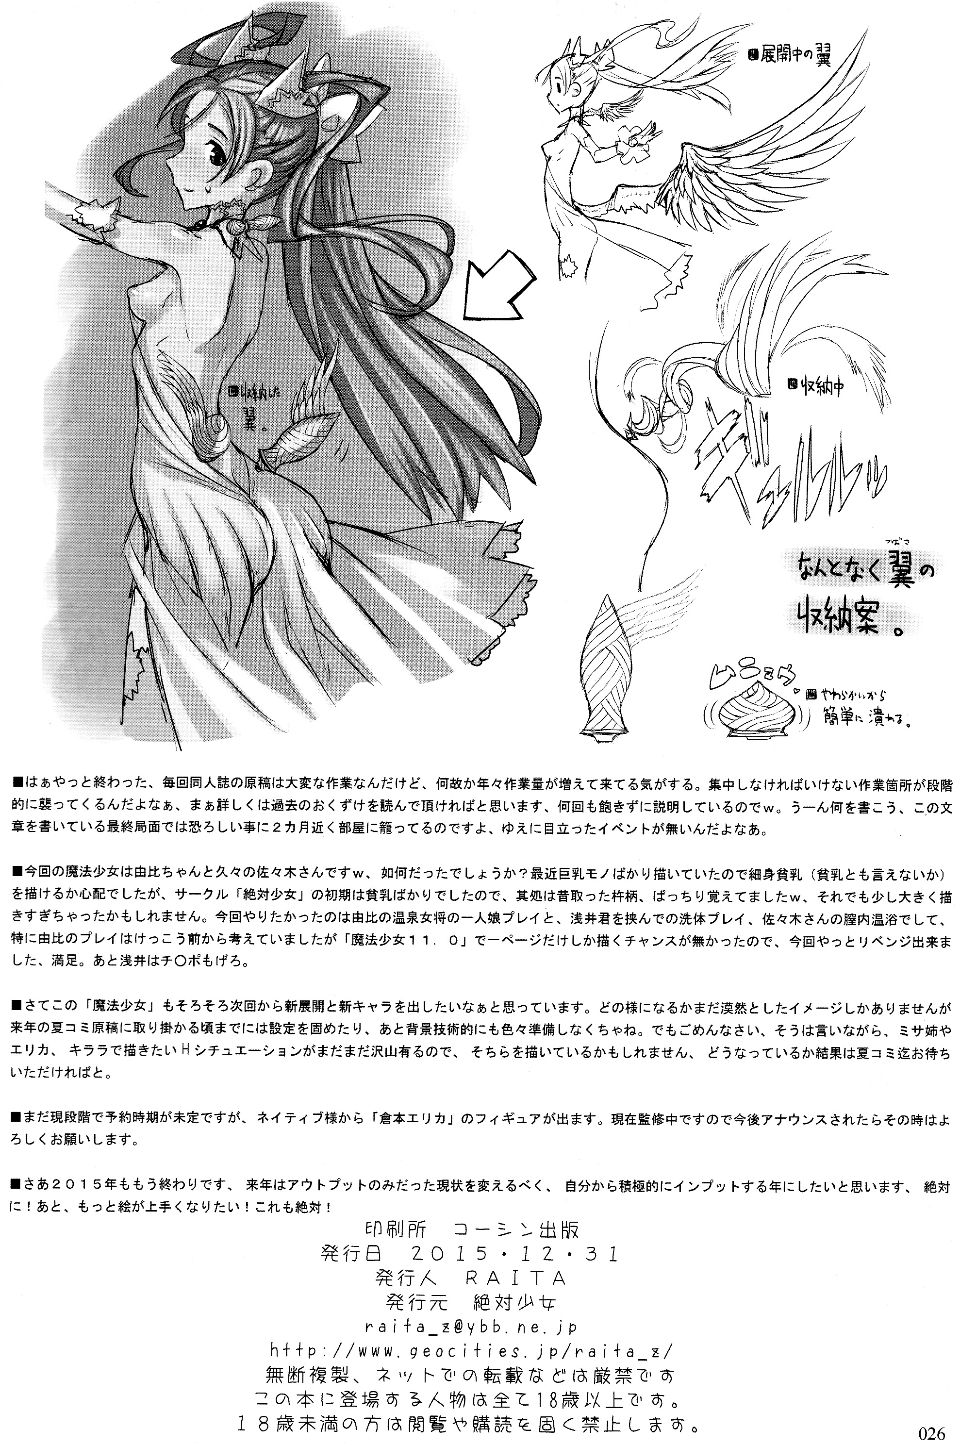 展開中の翼
収納中
ギュルルルッ
収納した
翼。
つばさ
なんとなく翼の
収納案。
ムニュウ
やわらかいから
簡単に潰れる。
■はぁやっと終わった、毎回同人誌の原稿は大変な作業なんだけど、何故か年々作業量が増えて来てる気がする。集中しなければいけない作業箇所が段階
的に襲ってくるんだよなぁ、まぁ詳しくは過去のおくずけを読んで頂ければと思います、何回も飽きずに説明しているのでｗ。うーん何を書こう、この文
章を書いている最終局面では恐ろしい事に２カ月近く部屋に籠ってるのですよ、ゆえに目立ったイベントが無いんだよなあ。
■今回の魔法少女は由比ちゃんと久々の佐々木さんですｗ、如何だったでしょうか？最近巨乳モノばかり描いていたので細身貧乳（貧乳とも言えないか）
を描けるか心配でしたが、サークル「絶対少女」の初期は貧乳ばかりでしたので、其処は昔取った杵柄、ばっちり覚えてましたｗ、それでも少し大きく描
きすぎちゃったかもしれません。今回やりたかったのは由比の温泉女将の一人娘プレイと、浅井君を挟んでの洗体プレイ、佐々木さんの膣内温浴でして、
特に由比のプレイはけっこう前から考えていましたが「魔法少女１１．０」で一ページだけしか描くチャンスが無かったので、今回やっとリベンジ出来ま
した、満足。あと浅井はチ〇ポもげろ。
■さてこの「魔法少女」もそろそろ次回から新展開と新キャラを出したいなぁと思っています。どの様になるかまだ漠然としたイメージしかありませんが
来年の夏コミ原稿に取り掛かる頃までには設定を固めたり、あと背景技術的にも色々準備しなくちゃね。でもごめんなさい、そうは言いながら、ミサ姉や
エリカ、キララで描きたいＨシチュエーションがまだまだ沢山有るので、そちらを描いているかもしれません、どうなっているか結果は夏コミ迄お待ち
いただければと。
■まだ現段階で予約時期が未定ですが、ネイティブ様から「倉本エリカ」のフィギュアが出ます。現在監修中ですので今後アナウンスされたらその時はよ
ろしくお願いします。
■さあ２０１５年ももう終わりです、来年はアウトプットのみだった現状を変えるべく、自分から積極的にインプットする年にしたいと思います、絶対
に！あと、もっと絵が上手くなりたい！これも絶対！
印刷所　コーシン出版
発行日　２０１５・１２・３１
発行人　ＲＡＩＴＡ
発行元　絶対少女
raita_z@ybb.ne.jp
http://www.geocities.jp/raita_z/
無断複製、ネットでの転載などは厳禁です
この本に登場する人物は全て18歳以上です。
１８歳未満の方は閲覧や購読を固く禁止します。
026